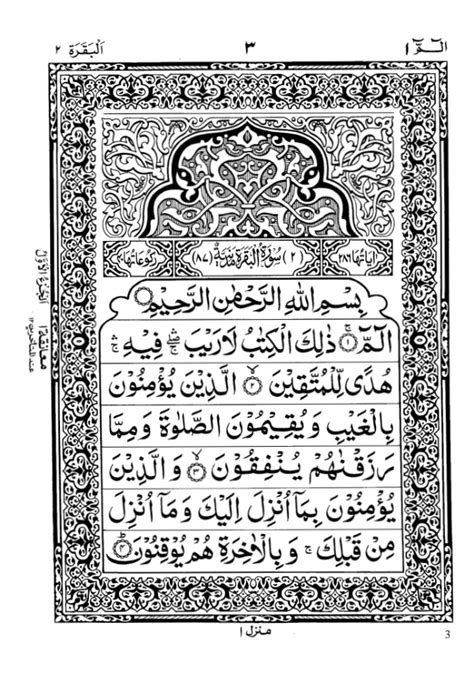 الٓمّٓ ١
٣
اَلْبَقَرَة ٢
اٰيَاتُهَا ٢٨٦
(٢) سُوْرَةُ الْبَقَرَةِ مَدَنِيَّةٌ (٨٧)
رُكُوْعَاتُهَا ٤٠
بِسْمِ اللّٰهِ الرَّحْمٰنِ الرَّحِيْمِ
الٓمّٓ ۚ﴿١﴾ ذٰلِكَ الْكِتٰبُ لَا رَيْبَ ۛۖ فِيْهِ ۛۚ
هُدًى لِّلْمُتَّقِيْنَ ﴿٢﴾ الَّذِيْنَ يُؤْمِنُوْنَ
بِالْغَيْبِ وَيُقِيْمُوْنَ الصَّلٰوةَ وَمِمَّا
رَزَقْنٰهُمْ يُنْفِقُوْنَ ﴿٣﴾ وَالَّذِيْنَ
يُؤْمِنُوْنَ بِمَاۤ اُنْزِلَ اِلَيْكَ وَمَاۤ اُنْزِلَ
مِنْ قَبْلِكَ ۚ وَبِالْاٰخِرَةِ هُمْ يُوْقِنُوْنَ ﴿٤﴾
الجزء الاول
معانقة ١
عند المتاخرين ١٢
منزل ١
3